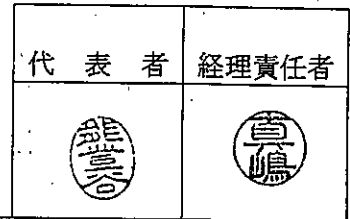 代表者 経理責任者
熊谷 真嶋